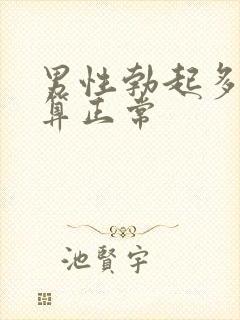 男性勃起多
算正常
池賢宇